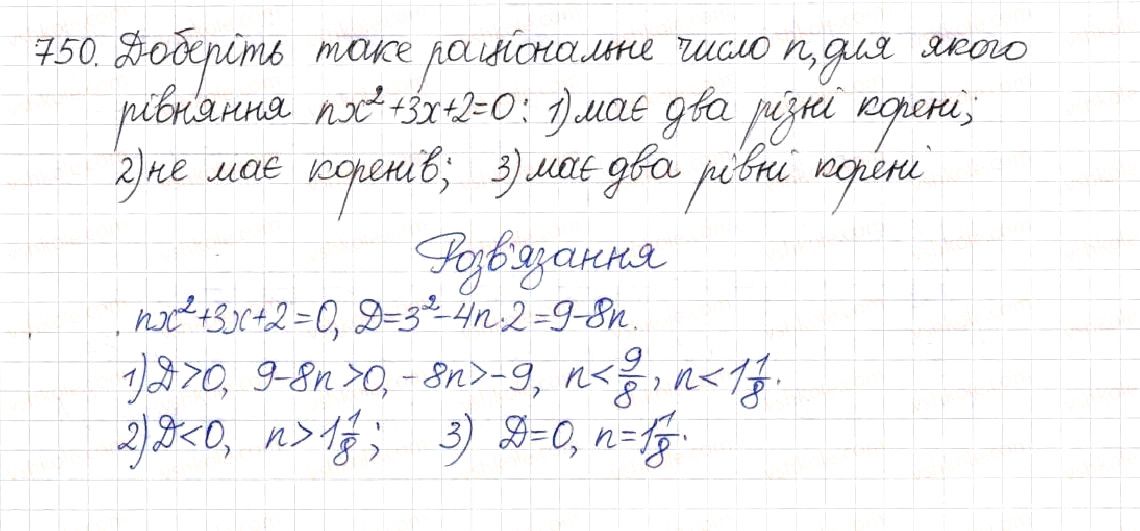 750. Доберіть таке раціональне число n, для якого
рівняння nx²+3x+2=0: 1) має два різні корені;
2) не має коренів; 3) має два рівні корені
Розв'язання
nx²+3x+2=0, Д=3²-4n·2=9-8n.
1) Д>0, 9-8n>0, -8n>-9, n<9/8, n<1 1/8.
2) Д<0, n>1 1/8; 3) Д=0, n=1 1/8.